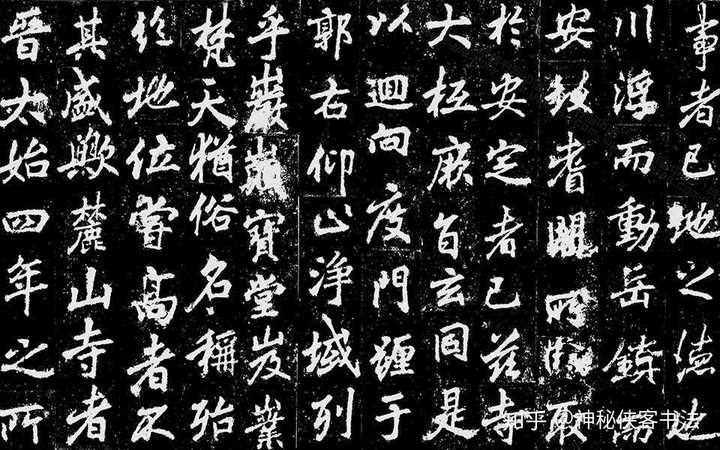 事者已地之德也
川浮而動岳鎮
安故耆取
於安定者已茲寺
大抵厥旨玄同是
以迴向度門躔于
郭右仰止淨域列
乎巖寶堂岌業
梵天猶俗名稱殆
地位嘗高者不
其盛歟麓山寺者
晉太始四年之所
知乎 @神秘侠客书法